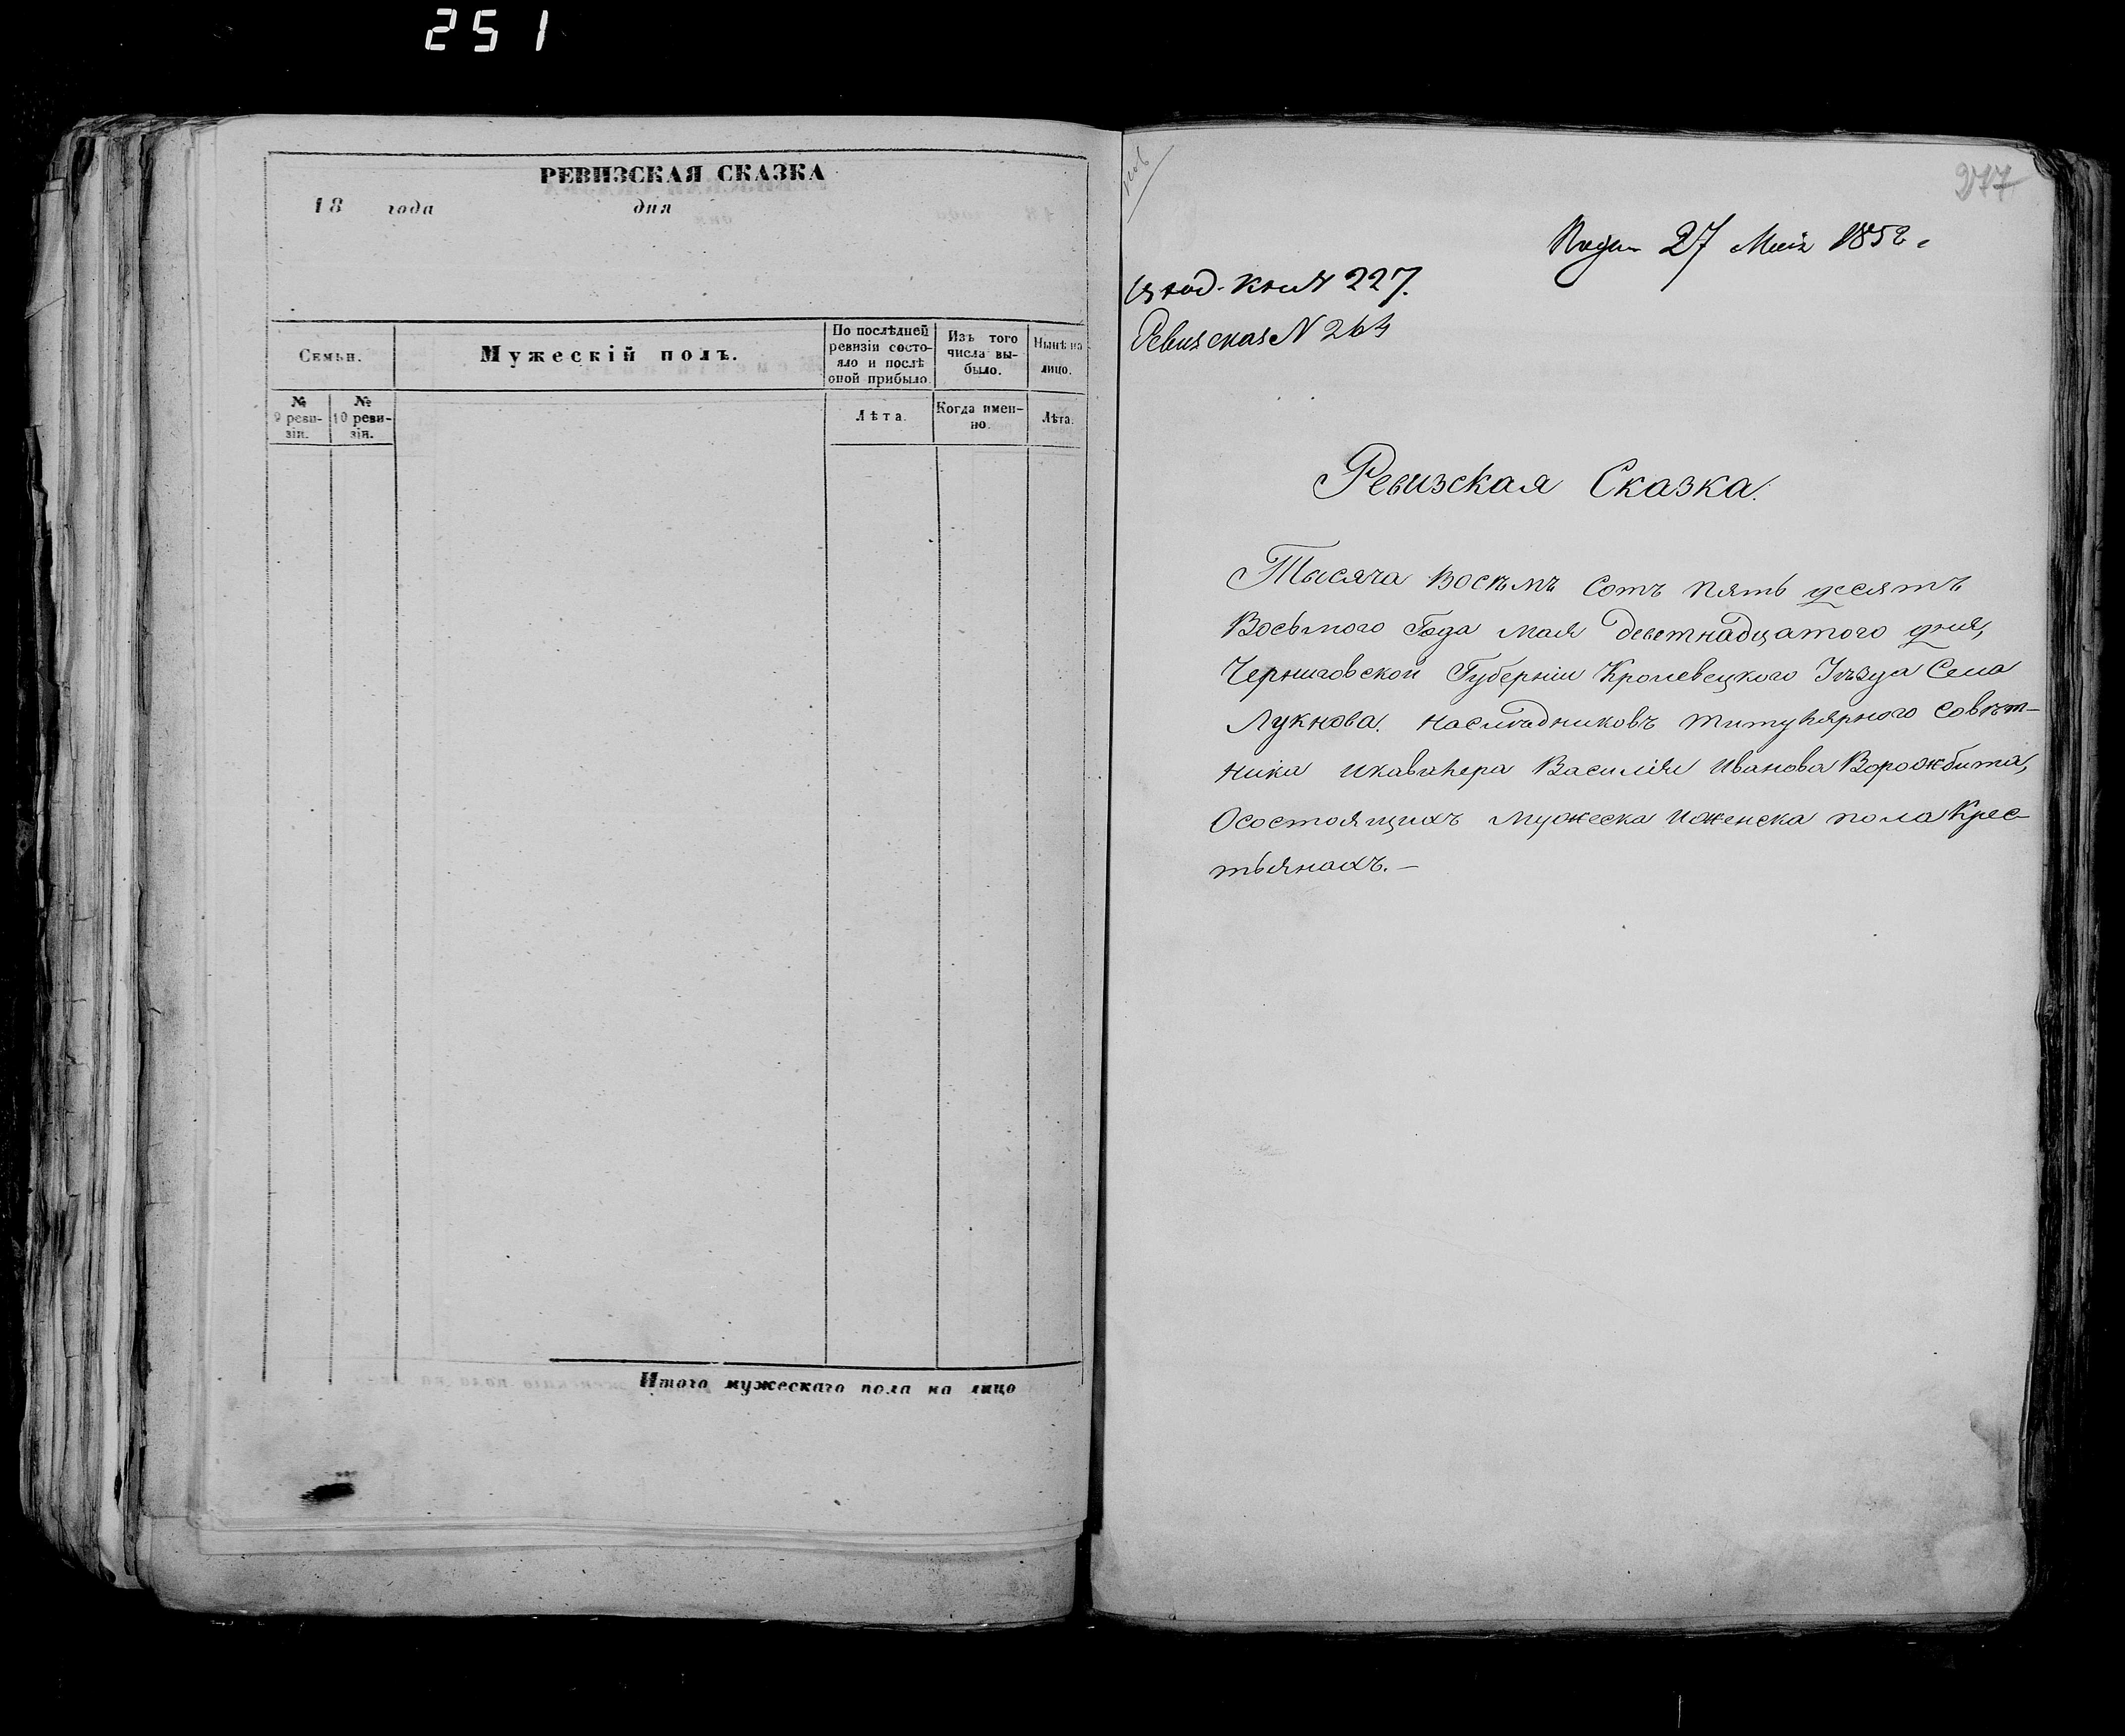 251
РЕВИЗСКАЯ СКАЗКА
18 года дня
Семьи.
Мужескій полъ.
По послѣдней ревизіи состо-
яло и послѣ
оной прибыло.
Изъ того
числа вы-
было.
Нынѣ на
лицо.
№
9 реви-
зіи.
№
10 реви-
зіи.
Лѣта.
Когда имен-
но.
Лѣта.
Итого мужескаго пола на лицо
277
27 Мая 1858
вход. кни № 227.
Ревизская № 264
Ревизская Сказка.
Тысяча Восѣмъ Сотъ пять десятъ
Восьмого Года мая деветнадцатого дня,
Черниговской Губерніи Кролевецкого Уѣзда Села
Лукнова. наслѣдниковъ титулярного Совѣт-
ника икавалера Василія Иванова Ворожбита,
Осостоящихъ мужеска иженска пола Крес-
тьянахъ.—